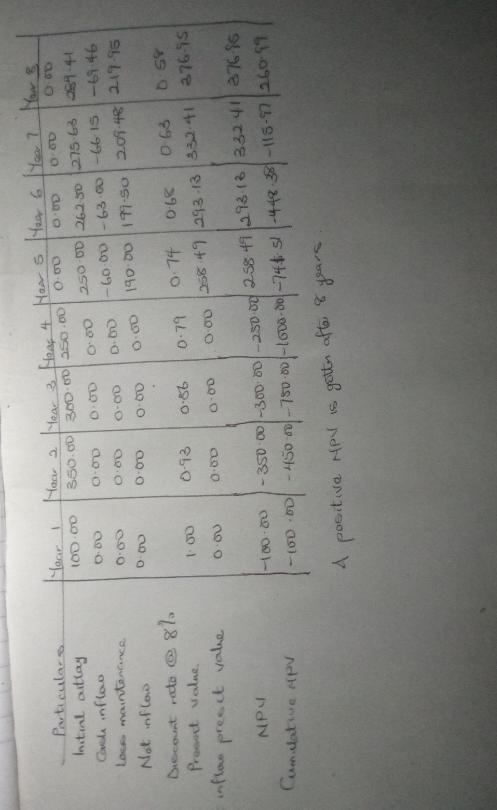 Particulars Year 1 Year 2 Year 3 Year 4 Year 5 Year 6 Year 7 Year 8
Initial outlay 100.00 350.00 300.00 250.00 0.00 0.00 0.00 0.00
Cash inflow 0.00 0.00 0.00 0.00 250.00 262.50 275.63 289.41
Less maintenance 0.00 0.00 0.00 0.00 -60.00 -63.00 -66.15 -69.46
Net inflow 0.00 0.00 0.00 0.00 190.00 199.50 209.48 219.95
Discount rate @ 8%
Present value 1.00 0.93 0.86 0.79 0.74 0.68 0.63 0.58
inflow present value 0.00 0.00 0.00 0.00 258.49 293.13 332.41 376.95
NPV -100.00 -350.00 -300.00 -250.00 258.49 293.13 332.41 376.95
Cumulative NPV -100.00 -450.00 -750.00 -1000.00 -741.51 -448.38 -115.97 260.99
A positive NPV is gotten after 8 years.